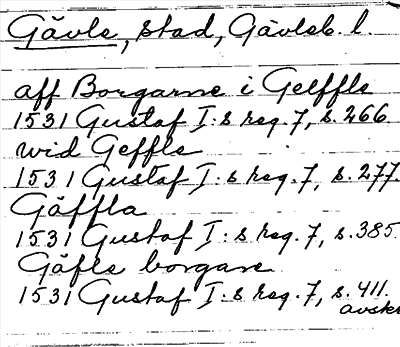 Gävle, stad, Gävleb. l.
aff Borgarne i Gelffle
1531 Gustaf I:s reg. 7, s. 266.
wid Geffle
1531 Gustaf I:s reg. 7, s. 277.
Gäffla
1531 Gustaf I:s reg. 7, s. 385.
Gäfle borgare
1531 Gustaf I:s reg. 7, s. 411.
avskr